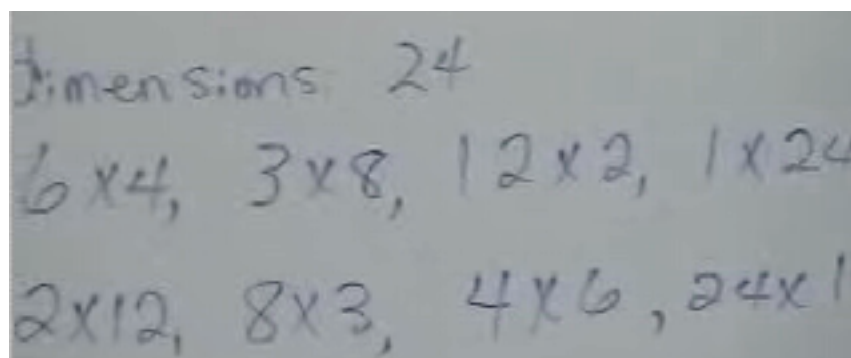 Dimensions: 24
6x4, 3x8, 12x2, 1x24
2x12, 8x3, 4x6, 24x1